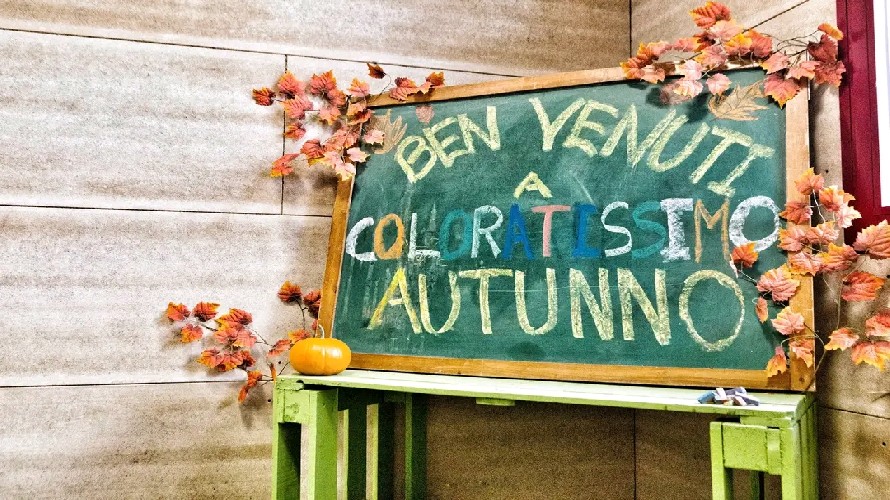 BEN VENUTI
A
COLORATISSSIMO
AUTUNNO